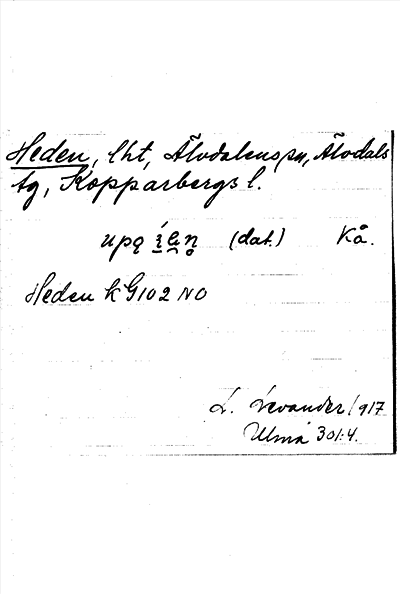 Heden, lht, Älvdalens sn, Älvdals
tg, Kopparbergs l.
upą (dat.) Kå.
Heden k G102 NO
L. Levander 1917
Ulma 301:4.